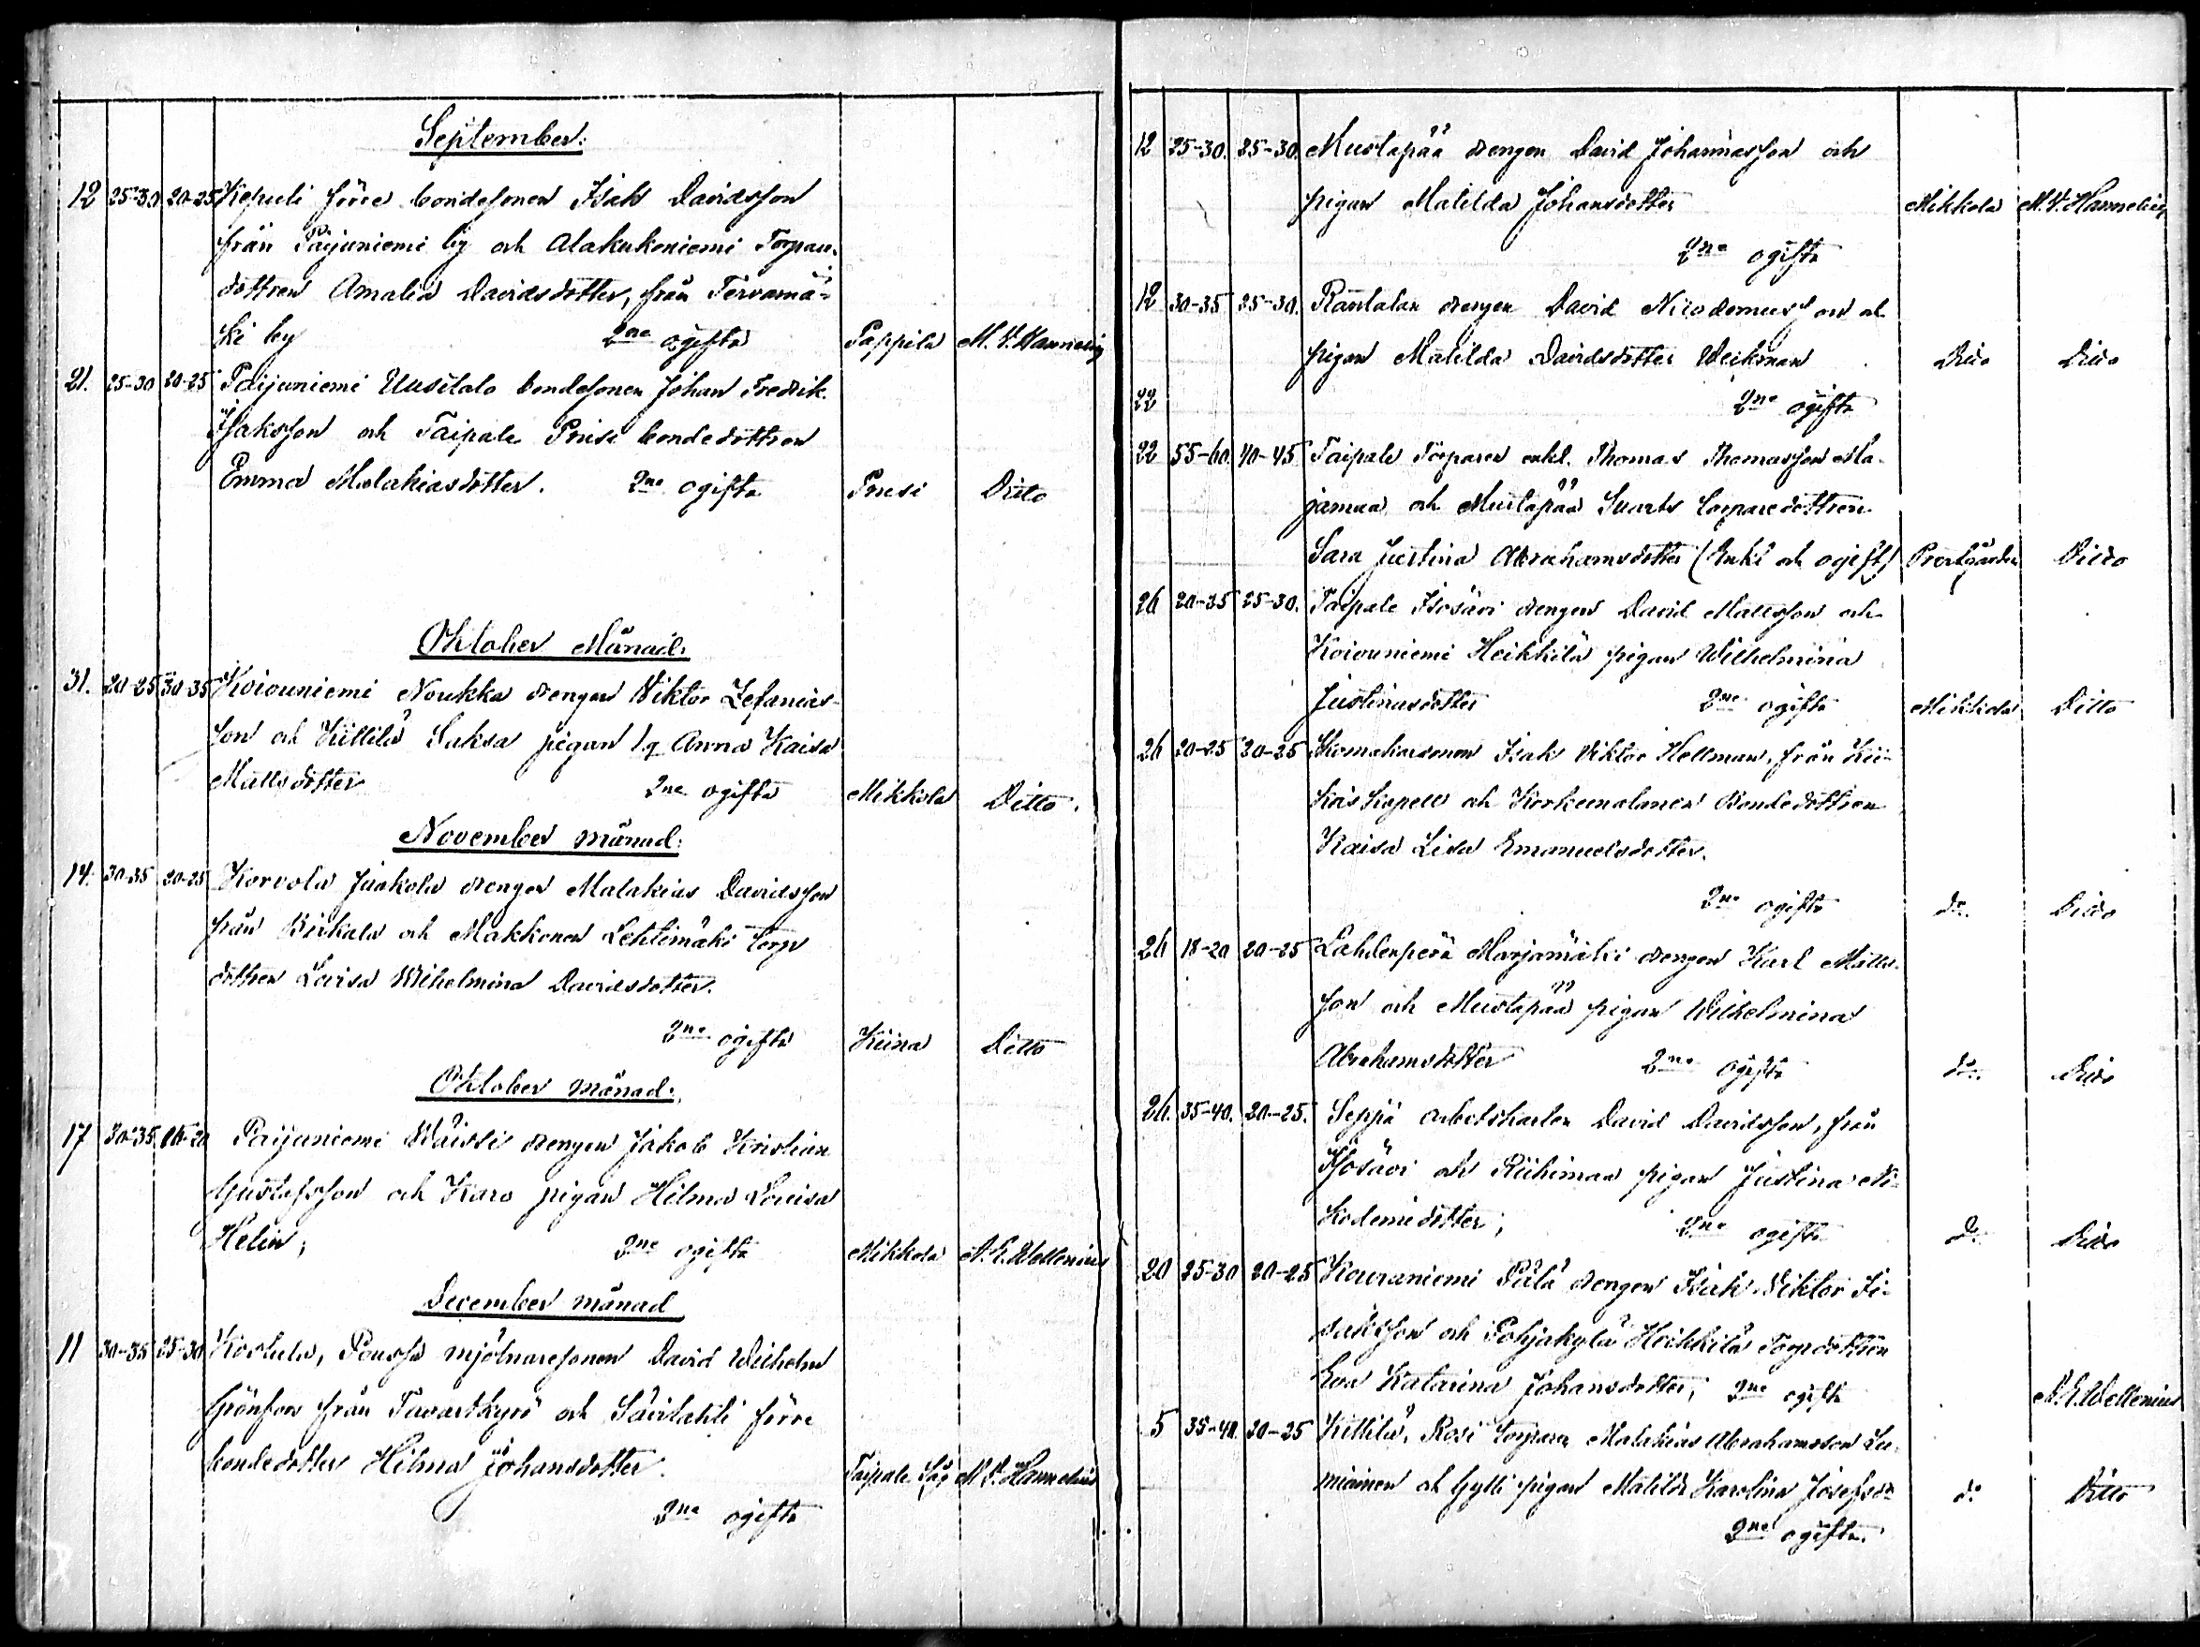 September:
12 25-30 20-25 Kepuli förre bondesonen Isak Davidsson
från Paijuniemi by och Alakukoniemi Torpar-
dottren Amalia Davidsdotter, från Tervamä-
ki by 2ne ogifta Pappila M. V. Hannelius
21. 25-30 20-25 Paijuniemi Uusitalo bondesonen Johan Fredrik
Isaksson och Taipale Prusi bondedottren
Emma Malakiasdotter. 2ne ogifta Prusi Ditto
Oktober Månad:
31. 20-25 30-35 Koivuniemi Noukka drengen Viktor Zefanias-
son och Kittilä Saksa pigan Anna Kaisa
Mattsdotter 2ne ogifta Mikkola Ditto.
November månad:
14. 30-35 20-25 Korvola Jaakola drengen Malakias Davidsson
från Birkala och Makkonen Lehtimäki torp
dottren Lovisa Wilhelmina Davidsdotter.
2ne ogifta Kiina Ditto
Oktober månad:
17 30-35. 16-20 Paijuniemi Wäisti drengen Jakob Kristian
Gustafsson och Karo pigan Hilma Lovisa
Helin; 2ne ogifta Mikkola
December månad
11 30-35 25-30 Koskela, mjölnaresonen David Wilhelm
Grönfors från Tavastkyrö och Sävilahti förre
bondedotter Hilma Johansdotter. Taipale Såg M. V. Hannelius
2ne ogifta
12 25-30. 25-30. Mustapää drengen David Johannasson och
pigan Matilda Johansdotter Mikkola M. V. Hannelius
2ne ogifta
12 30-35 25-30. Rantalan drengen David Nicodemusson och
pigan Matilda Davidsdotter Weikman Ditto Ditto
22 2ne ogifta
22 55-60. 40-45 Taipale Torparen enkl. Thomas Thomasson Ma-
jamaa och Mustapää Svarts torparedottren
Sara Justina Abrahamsdotter (Enkl och ogift) Prostgården Ditto
26 25-30. Taipale Isosävi drengen David Mattsson och
Koivuniemi Heikkilä pigan Wilhelmina
Justinasdotter 2ne ogifta Mikkola Ditto
26 20-25 20-25 Skomakaresonen Isak Viktor Hellman, från Kii-
kois kapell och Korkeenalanen Bondedottren
Kaisa Lisa Emanuelsdotter.
2ne ogifta do. Ditto
26 18-20 20-25 Lahdenperä Marjamäki drengen Karl Matts-
son och Mustapää pigan Wilhelmina
Abrahamsdotter 2ne ogifta do. Ditto
26. 35-40. 20-25. Seppä arbetskarlen David Davidsson, från
Isosävi och Riihimaa pigan Justina Ni-
kodemidotter; 2ne ogifta do. Ditto
20 25-30 20-25 Kouraniemi Pälä drengen Isak Viktor Isaksson och Pohjakylä Heikkilä Torpdottren
Eva Katarina Johansdotter; 2ne ogifta
5 35-40. 20-25 Kittilä, Rosi torparen Malakias Abrahamsson Lu-
miainen och Gylli pigan Matilda Karolina Josefsdr do Ditto
2ne ogifta.